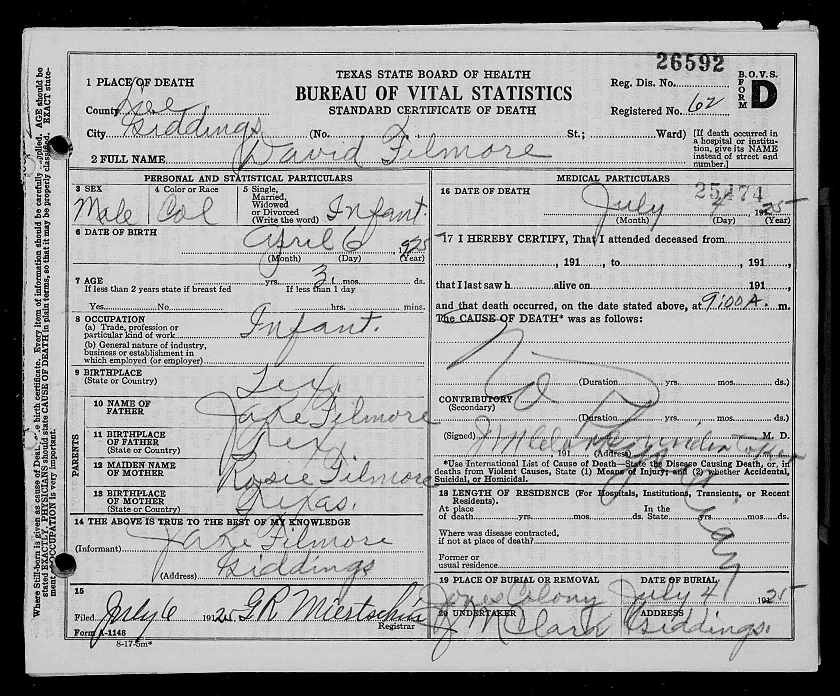 26592
TEXAS STATE BOARD OF HEALTH
BUREAU OF VITAL STATISTICS
STANDARD CERTIFICATE OF DEATH
B.O.V.S.
FORM D
Reg. Dis. No.
Registered No. 62
1 PLACE OF DEATH
County Lee
City Giddings (No. St.; Ward)
[If death occurred in a hospital or institution, give its NAME instead of street and number.]
2 FULL NAME David Filmore
PERSONAL AND STATISTICAL PARTICULARS
3 SEX Male
4 Color or Race Col
5 Single, Married, Widowed or Divorced (Write the word) Infant.
6 DATE OF BIRTH April 6 1925
(Month) (Day) (Year)
7 AGE yrs. 3 mos. ds.
If less than 2 years state if breast fed
If less than 1 day
Yes No hrs. mins.
8 OCCUPATION
(a) Trade, profession or particular kind of work Infant.
(b) General nature of industry, business or establishment in which employed (or employer)
9 BIRTHPLACE
(State or Country) Tex.
PARENTS
10 NAME OF FATHER Jake Filmore
11 BIRTHPLACE OF FATHER
(State or Country) Tex
12 MAIDEN NAME OF MOTHER Rosie Filmore
13 BIRTHPLACE OF MOTHER
(State or Country) Texas.
14 THE ABOVE IS TRUE TO THE BEST OF MY KNOWLEDGE
(Informant) Jake Filmore
(Address) Giddings
15
Filed July 6 1925 G R Miertschin
Registrar
Form A-1146
8-17-5m*
MEDICAL PARTICULARS
25474
16 DATE OF DEATH July 4 1925
(Month) (Day) (Year)
17 I HEREBY CERTIFY, That I attended deceased from
, 191 , to , 191 ,
that I last saw h alive on 191 ,
and that death occurred, on the date stated above, at 9:00 A. m.
The CAUSE OF DEATH* was as follows:
No
(Duration yrs. mos. ds.)
CONTRIBUTORY
(Secondary)
(Duration yrs. mos. ds.)
(Signed) M. D.
191 (Address)
*Use International List of Cause of Death—State the Disease Causing Death, or, in deaths from Violent Causes, State (1) Means of Injury; and (2) whether Accidental, Suicidal, or Homicidal.
18 LENGTH OF RESIDENCE (For Hospitals, Institutions, Transients, or Recent Residents).
At place of death yrs. mos. ds.
In the State yrs. mos. ds.
Where was disease contracted, if not at place of death?
Former or usual residence
19 PLACE OF BURIAL OR REMOVAL Colony
DATE OF BURIAL July 4 1925
20 UNDERTAKER J M Clark
ADDRESS Giddings.